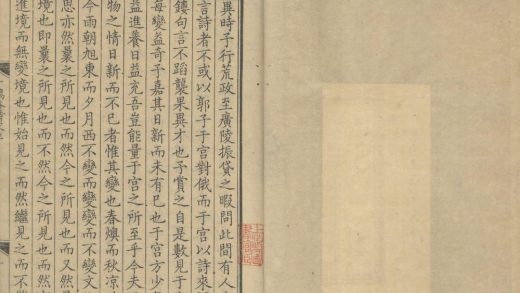 異時予行荒政至廣陵振貸之暇問此間有人
言詩者不或以郭子于宮對俄而于宮以詩來
鏤句言不蹈襲果異才也予賞之自是數見于
每變益奇予嘉其日新而未有已也于宮方少
益進養日益充吾豈能量于宮之所至乎今夫
物之情日新而不已者惟其變也春燠而秋凉
今雨朝旭東而夕月西不變而變變而不變文
思亦然曩之所見也而然今之所見也而又然
境也即曩之所見也而不然今之所見也而然
進境而無變境也惟始見之而然繼見之而不